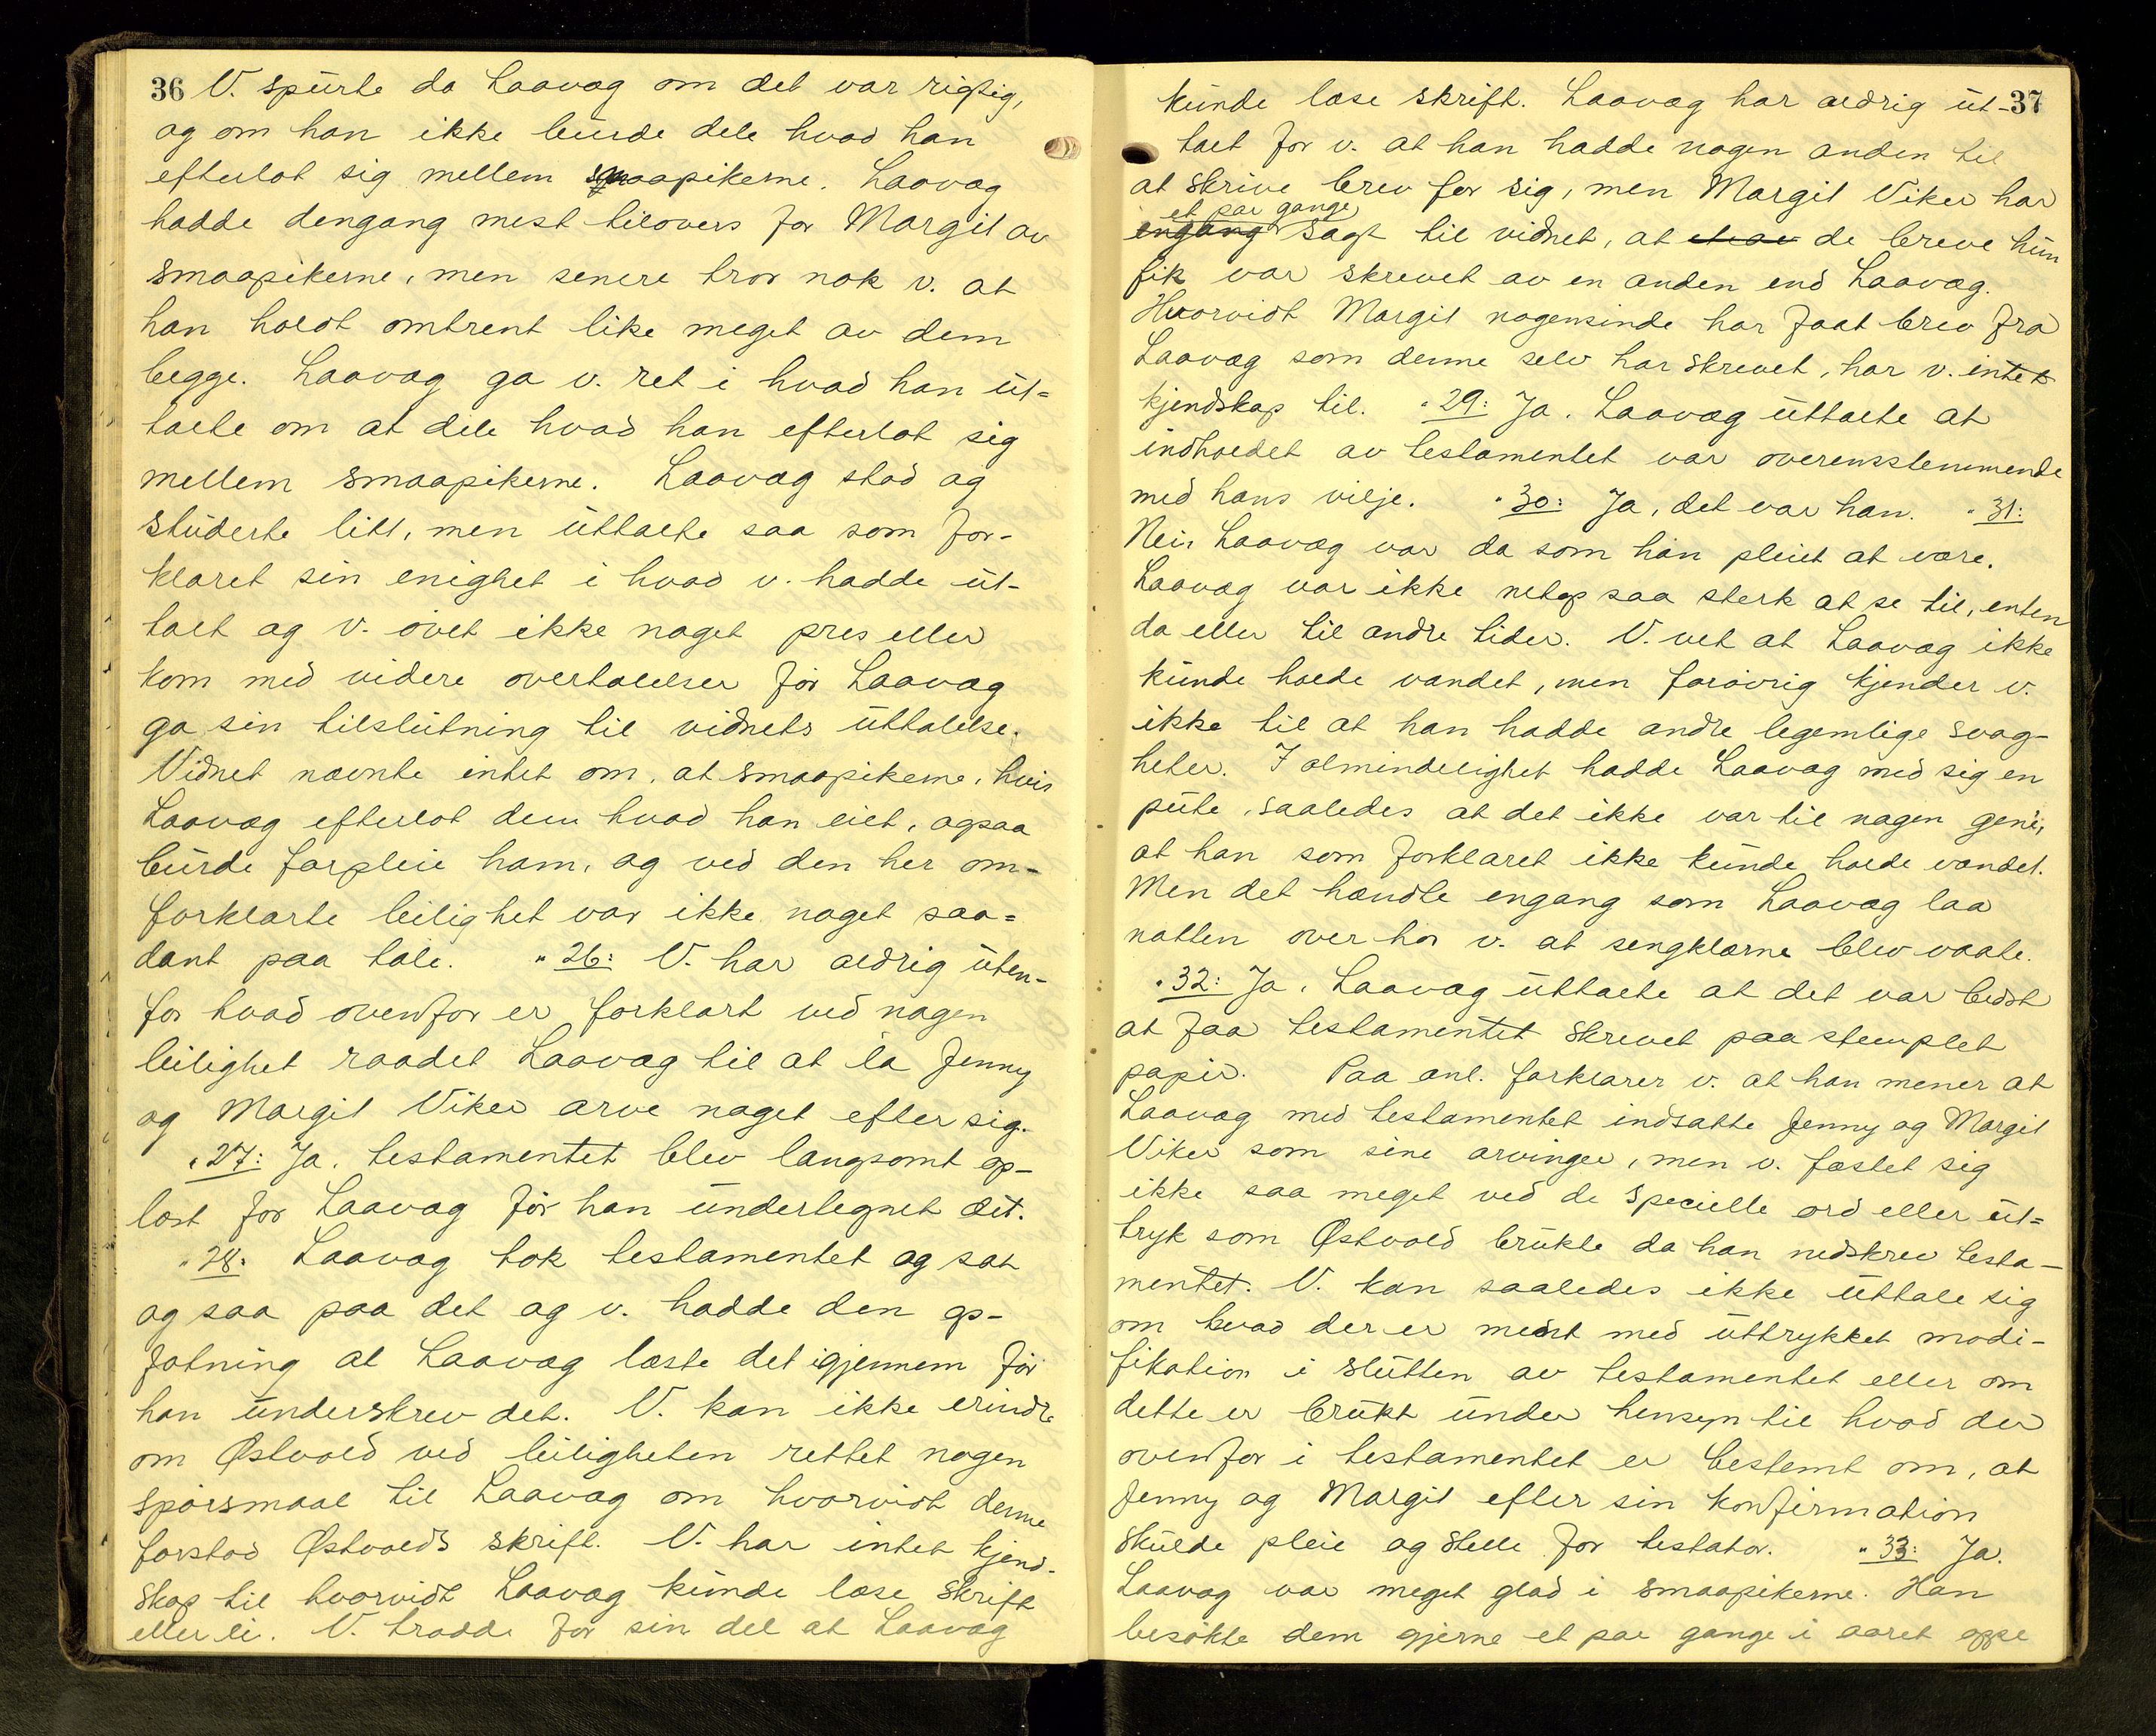 36 V. spurte da Laavag om det var rigtig,
og om han ikke burde dele hvad han
efterlot sig mellem smaapikerne. Laavag
hadde dengang mest tilovers for Margit av
smaapikerne, men senere tror nok v. at
han holdt omtrent like meget av dem
begge. Laavag ga v. ret i hvad han ut=
talte om at dele hvad han efterlot sig
mellem smaapikerne. Laavag stod og
studerte litt, men uttalte saa som for-
klaret sin enighet i hvad v. hadde ut-
talt og v. øvet ikke noget pres eller
kom med videre overtalelser før Laavag
ga sin tilslutning til vidnets uttalelse.
Vidnet nævnte intet om, at smaapikerne, hvis
Laavag efterlot dem hvad han eiet, ogsaa
burde forpleie ham, og ved den her om-
forklarte leilighet var ikke noget saa=
dant paa tale. " 26: V. har aldrig uten-
for hvad ovenfor er forklart ved nogen
leilighet raadet Laavag til at la Jenny
og Margit Viker arve noget efter sig.
" 27: Ja. testamentet blev langsomt op-
læst for Laavag før han undertegnet det.
" 28: Laavag tok testamentet og sat
og saa paa det og v. hadde den op-
fatning at Laavag læste det igjennem før
han underskrev det. V. kan ikke erindre
om Østvold ved leiligheten rettet nogen
spørsmaal til Laavag om hvorvidt denne
forstod Østvolds skrift. V. har intet kjend-
skap til hvorvidt Laavag kunde læse skrift
eller ei. V. trodde for sin del at Laavag
37
kunde læse skrift. Laavag har aldrig ut-
talt for v. at han hadde nogen anden til
at skrive brev for sig, men Margit Viker har
et par gange
engang sagt til vidnet, at de breve hun
fik var skrevet av en anden end Laavag.
Hvorvidt Margit nogensinde har faat brev fra
Laavag som denne selv har skrevet, har v. intet
kjendskap til. " 29: Ja. Laavag uttalte at
indholdet av testamentet var overensstemmende
med hans vilje. " 30: Ja, det var han. " 31:
Nei, Laavag var da som han pleiet at være.
Laavag var ikke netop saa sterk at se til, enten
da eller til andre tider. V. vet at Laavag ikke
kunde holde vandet, men forøvrig kjender v.
ikke til at han hadde andre legemlige svag-
heter. I almindelighet hadde Laavag med sig en
pute, saaledes at det ikke var til nogen gene,
at han som forklaret ikke kunde holde vandet.
Men det hændte engang som Laavag laa
natten over hos v. at sengklærne blev vaate.
" 32: Ja, Laavag uttalte at det var bedst
at faa testamentet skrevet paa stemplet
papir. Paa anl. forklarer v. at han mener at
Laavag med testamentet indsatte Jenny og Margit
Viker som sine arvinger, men v. fæstet sig
ikke saa meget ved de specielle ord eller ut=
tryk som Østvold brukte da han nedskrev testa-
mentet. V. kan saaledes ikke uttale sig
om hvad der er ment med uttrykket modi-
fikation i slutten av testamentet eller om
dette er brukt under hensyn til hvad der
ovenfor i testamentet er bestemt om, at
Jenny og Margit efter sin konfirmation
skulde pleie og stelle for testator. " 33: Ja.
Laavag var meget glad i smaapikerne. Han
besøkte dem gjerne et par gange i aaret oppe